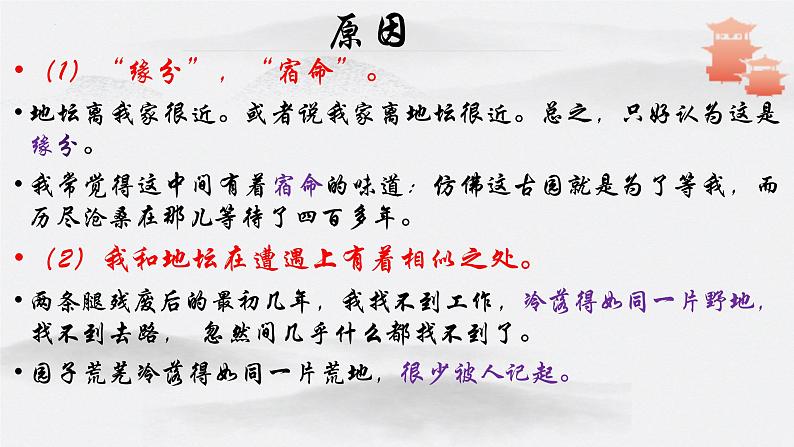 原因
• （1）“缘分”，“宿命”。
• 地坛离我家很近。或者说我家离地坛很近。总之，只好认为这是
缘分。
• 我常觉得这中间有着宿命的味道：仿佛这古园就是为了等我，而
历尽沧桑在那儿等待了四百多年。
• （2）我和地坛在遭遇上有着相似之处。
• 两条腿残废后的最初几年，我找不到工作，冷落得如同一片野地，
找不到去路， 忽然间几乎什么都找不到了。
• 园子荒芜冷落得如同一片荒地，很少被人记起。